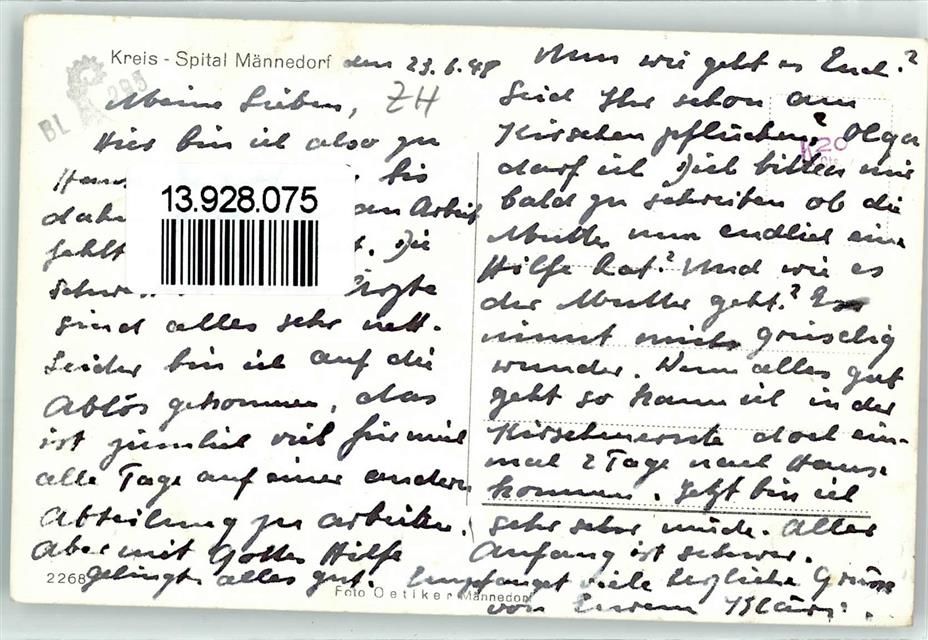 Kreis - Spital Männedorf den 23.6.48
BL 295
Meine Lieben, ZH
Hier bin ich also zu
bis
13.928.075
den Arbeit
fehlt Die
Ärzte
sind alles sehr nett.
Leider bin ich auf die
Ablös gekommen, das
ist zimlich viel für mich
alle Tage auf einer andern
Abteilung zu arbeiten.
Aber mit Gottes Hilfe
gelingt alles gut.
2268
Foto Oetiker Männedorf
Nun wie geht es Euch?
Seid Ihr schon am
Kirschen pflücken? Olga
darf ich Dich bitten mir
bald zu schreiben ob die
Mutter nun endlich eine
Hilfe hat? Und wie es
der Mutter geht? Es
nimmt mich gruselig
wunder. Wenn alles gut
geht so kann ich in der
Kirschenernte doch ein-
mal 2 Tage nach Hause
kommen. Jetzt bin ich
sehr sehr müde. Aller
Anfang ist schwer.
Empfanget viele herzliche Grüsse
von Eurem Kläri.